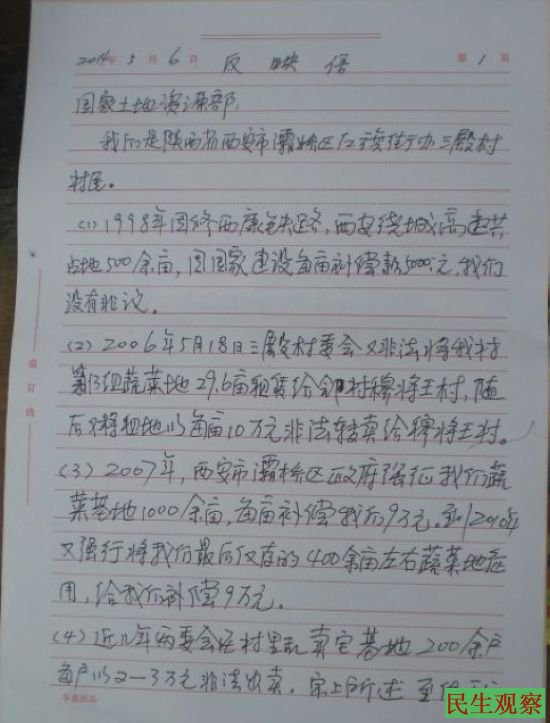 2014年5月6日 反映信 第1页
国家土地资源部:
我们是陕西省西安市灞桥区红旗街办三殿村
村民。
(1)1998年因修西康铁路,西安绕城高速共
占地500余亩,因国家建设每亩补偿款5000元,我们
没有非议。
(2)2006年5月18日三殿村委会又非法将我村
第13组蔬菜地29.6亩租赁给邻村穆将王村,随
后又将租地以每亩10万元非法转卖给穆将王村。
(3)2007年,西安市灞桥区政府强征我们蔬
菜基地1000余亩,每亩补偿我们9万元。到2010年
又强行将我们最后仅有的400余亩左右蔬菜地征
用,给我们补偿9万元。
(4)近几年两委会在村里乱卖宅基地200余户
每户以2—3万元非法出卖。综上所述
装订线
民生观察